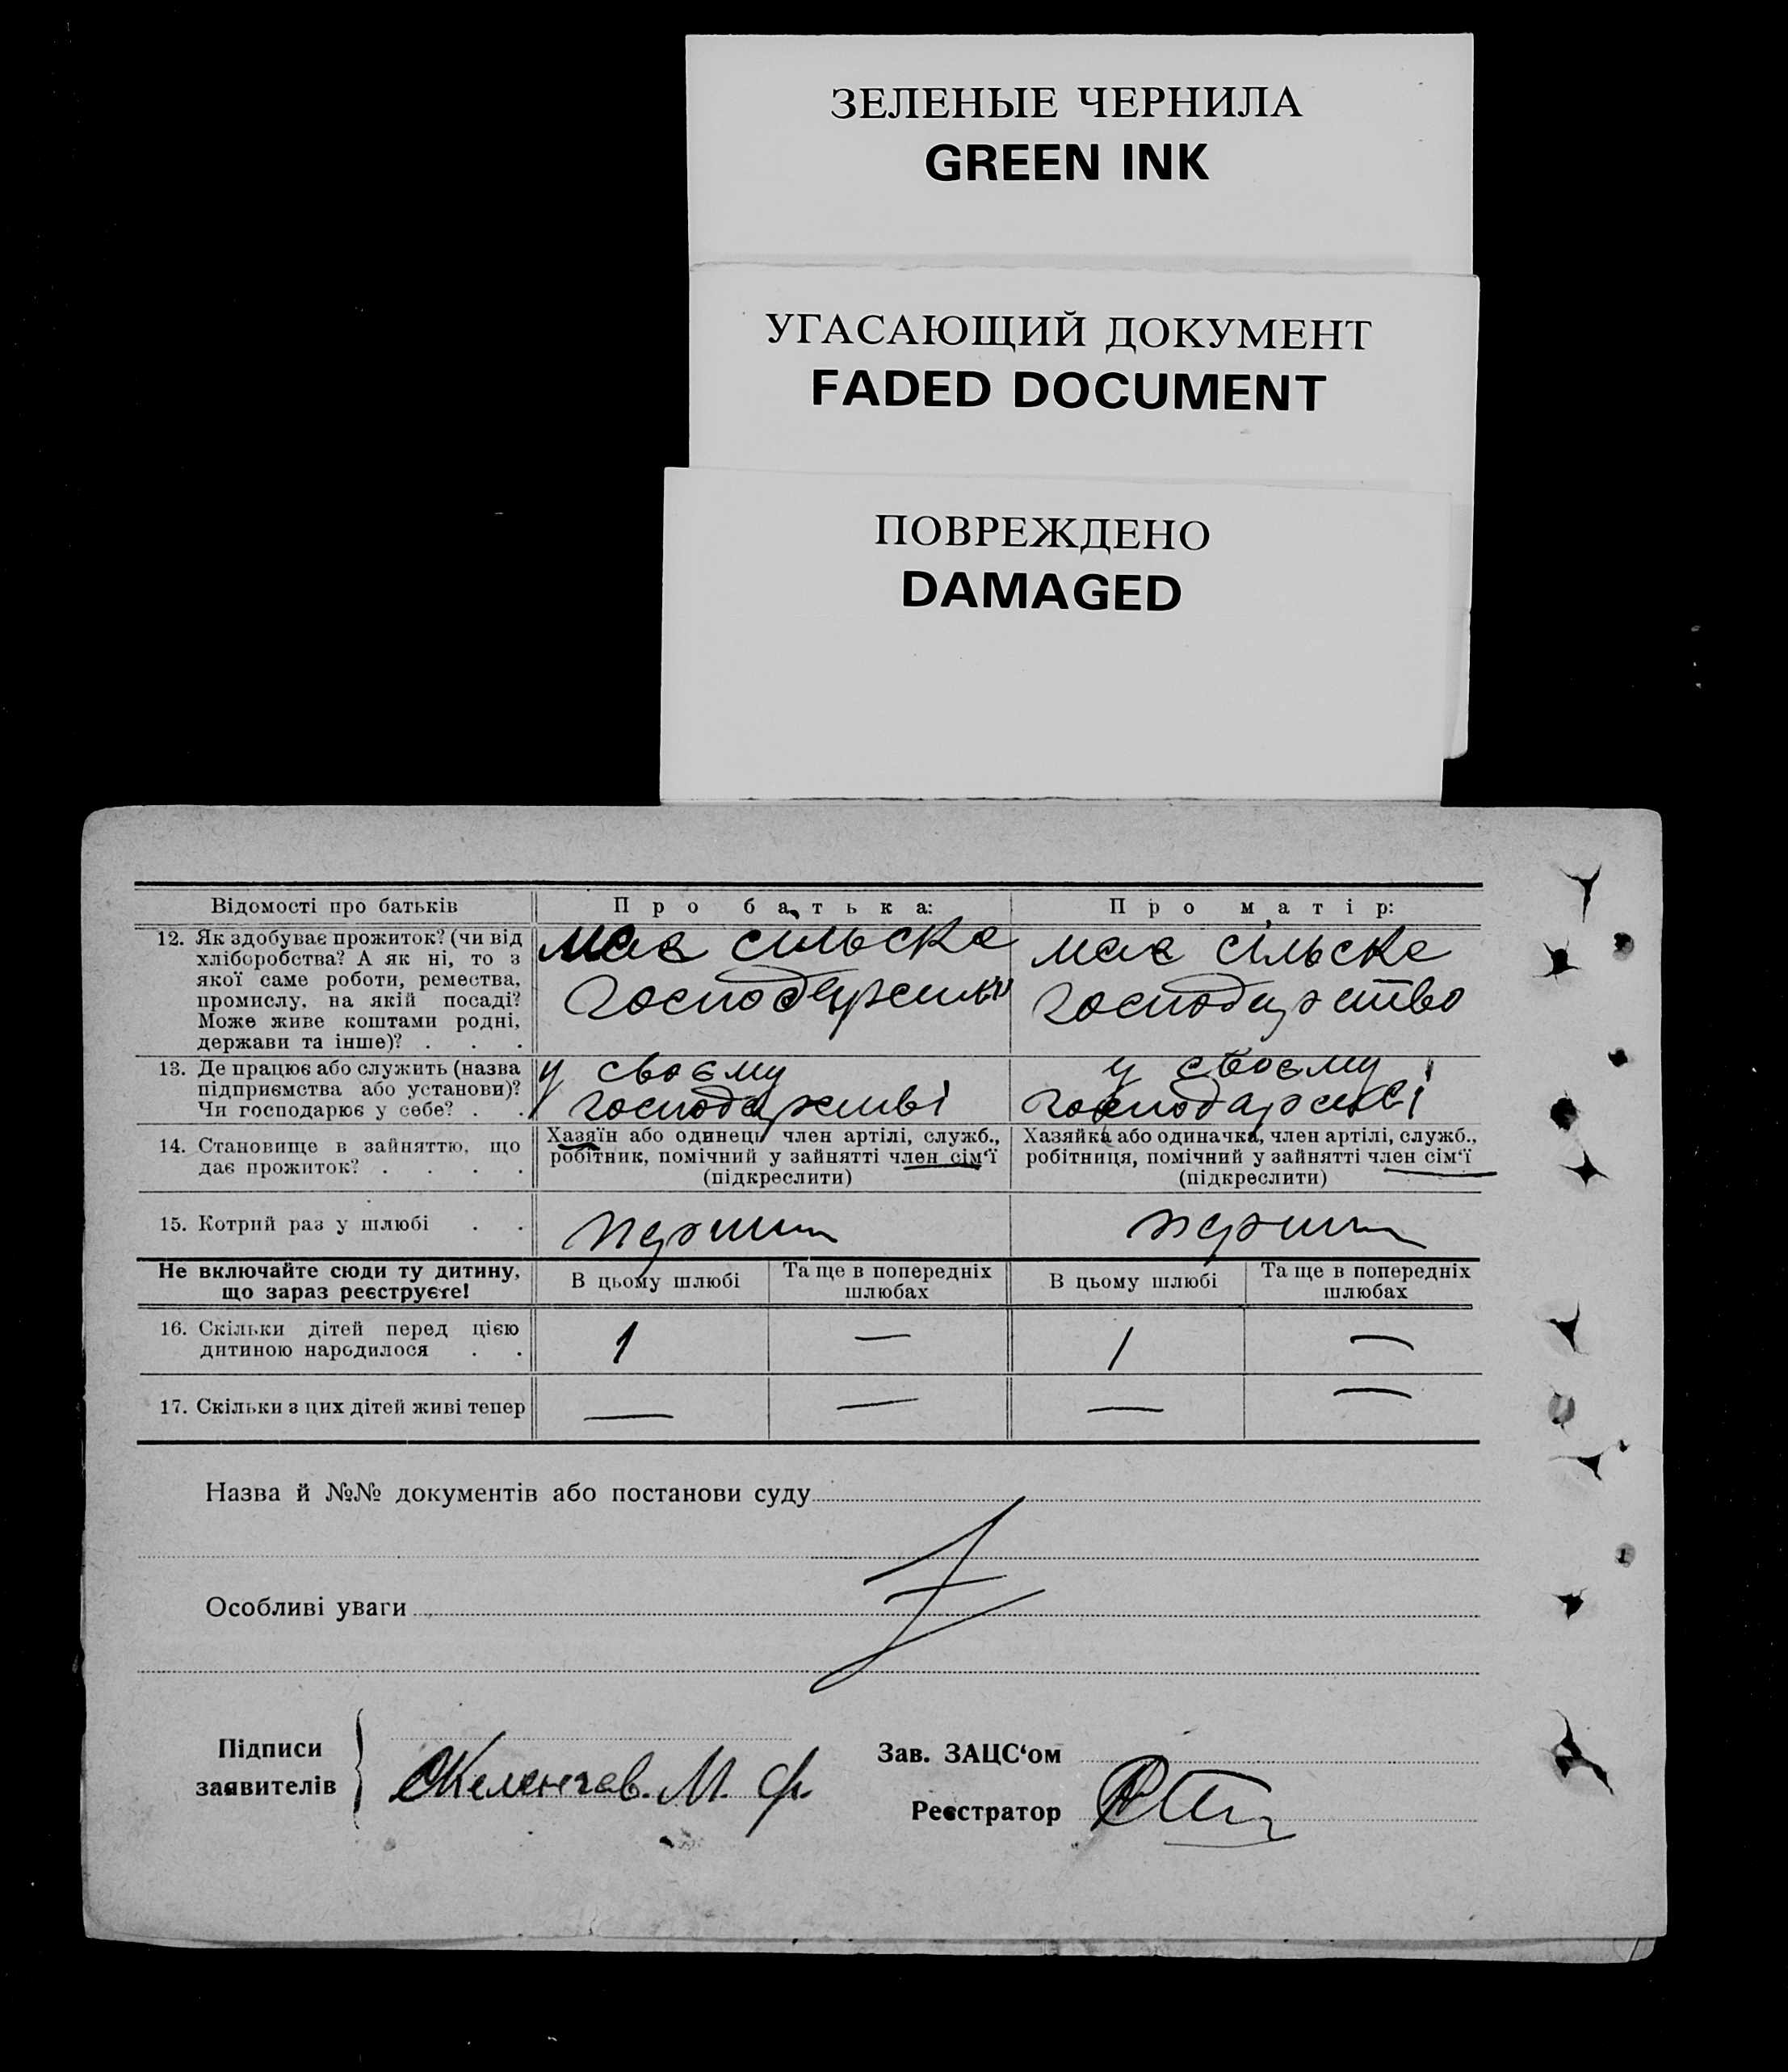 ЗЕЛЕНЫЕ ЧЕРНИЛА
GREEN INK
УГАСАЮЩИЙ ДОКУМЕНТ
FADED DOCUMENT
ПОВРЕЖДЕНО
DAMAGED
Відомості про батьків
Про батька:
Про матір:
12. Як здобуває прожиток? (чи від
хліборобства? А як ні, то з
якої саме роботи, ремества,
промислу, на якій посаді?
Може живе коштами родні,
держави та інше)? . . .
має сільске
господарство
має сільске
господарство
13. Де працює або служить (назва
підприємства або установи)?
Чи господарює у себе? . .
у своєму
господарстві
у своєму
господарстві
14. Становище в зайняттю, що
дає прожиток? . . . .
Хазяїн або одинець, член артілі, служб.,
робітник, помічний у зайнятті член сім'ї
(підкреслити)
Хазяйка або одиначка, член артілі, служб.,
робітниця, помічний у зайнятті член сім'ї
(підкреслити)
15. Котрий раз у шлюбі . .
перший
перший
Не включайте сюди ту дитину,
що зараз реєструєте!
В цьому шлюбі
Та ще в попередніх
шлюбах
В цьому шлюбі
Та ще в попередніх
шлюбах
16. Скільки дітей перед цією
дитиною народилося . .
1
—
1
—
17. Скільки з цих дітей живі тепер
—
—
—
—
Назва й №№ документів або постанови суду
Особливі уваги
Підписи
заявителів
М. Ф.
Зав. ЗАЦС'ом
Реєстратор